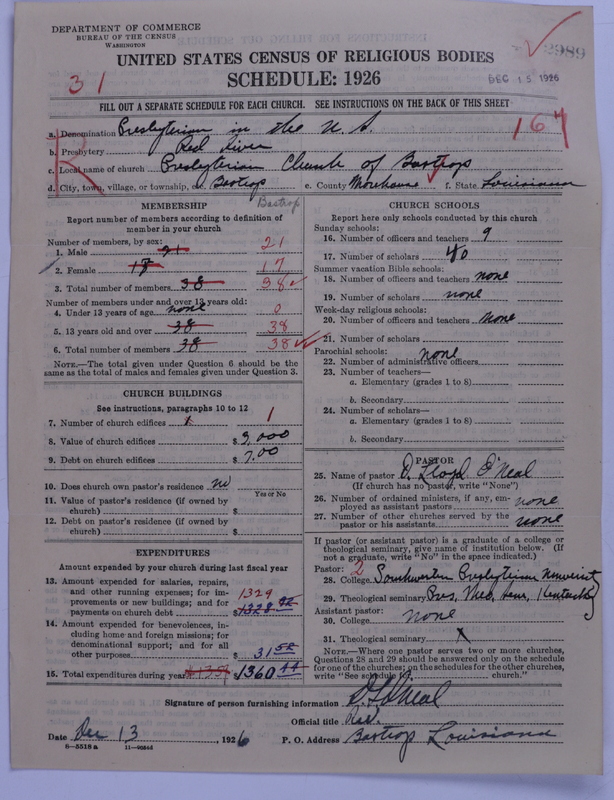 DEPARTMENT OF COMMERCE
BUREAU OF THE CENSUS
WASHINGTON
2989
UNITED STATES CENSUS OF RELIGIOUS BODIES
DEC 15 1926
31
SCHEDULE: 1926
FILL OUT A SEPARATE SCHEDULE FOR EACH CHURCH. SEE INSTRUCTIONS ON THE BACK OF THIS SHEET
R
167
a. Denomination Presbyterian in the U.S.
b. Presbytery Red River
c. Local name of church Presbyterian Church of Bastrop
d. City, town, village, or township, etc. Bastrop e. County Morehouse f. State Louisiana
Bastrop
MEMBERSHIP
Report number of members according to definition of member in your church
Number of members, by sex:
1. Male 21 21
2. Female 17 17
3. Total number of members 38 38
Number of members under and over 13 years old:
4. Under 13 years of age none 0
5. 13 years old and over 38 38
6. Total number of members 38 38
NOTE.—The total given under Question 6 should be same as the total of males and females given under Question 3.
CHURCH BUILDINGS
See instructions, paragraphs 10 to 12
7. Number of church edifices 1 1
8. Value of church edifices $ 9,000
9. Debt on church edifices $ 7.00
10. Does church own pastor's residence no
Yes or No
11. Value of pastor's residence (if owned by church) $
12. Debt on pastor's residence (if owned by church) $
EXPENDITURES
Amount expended by your church during last fiscal year
13. Amount expended for salaries, repairs, and other running expenses; for improvements or new buildings; and for payments on church debt 1329 $1328.92
14. Amount expended for benevolences, including home and foreign missions; for denominational support; and for all other purposes $ 31.52
15. Total expenditures during year $1360.44
CHURCH SCHOOLS
Report here only schools conducted by this church
Sunday schools:
16. Number of officers and teachers 9
17. Number of scholars 40
Summer vacation Bible schools:
18. Number of officers and teachers none
19. Number of scholars none
Week-day religious schools:
20. Number of officers and teachers none
21. Number of scholars
Parochial schools: none
22. Number of administrative officers
23. Number of teachers—
a. Elementary (grades 1 to 8)
b. Secondary
24. Number of scholars—
a. Elementary (grades 1 to 8)
b. Secondary
PASTOR
25. Name of pastor O. Lloyd O'Neal
(If church has no pastor, write "None")
26. Number of ordained ministers, if any, employed as assistant pastors none
27. Number of other churches served by the pastor or his assistants none
If pastor (or assistant pastor) is a graduate of a college or theological seminary, give name of institution below. (If not a graduate, write "No" in the space indicated.)
Pastor: 2
28. College Southwestern Presbyterian University
29. Theological seminary Pres. Theo. Sem., Kentucky
Assistant pastor:
30. College none
31. Theological seminary x
NOTE.—Where one pastor serves two or more churches, Questions 28 and 29 should be answered only on the schedule for one of the churches; on the schedules for the other churches, write "See schedule for church."
Signature of person furnishing information O. L. O'Neal
Official title Rev.
Date Dec 13, 1926 P. O. Address Bastrop Louisiana
8—5518a 11—9054d